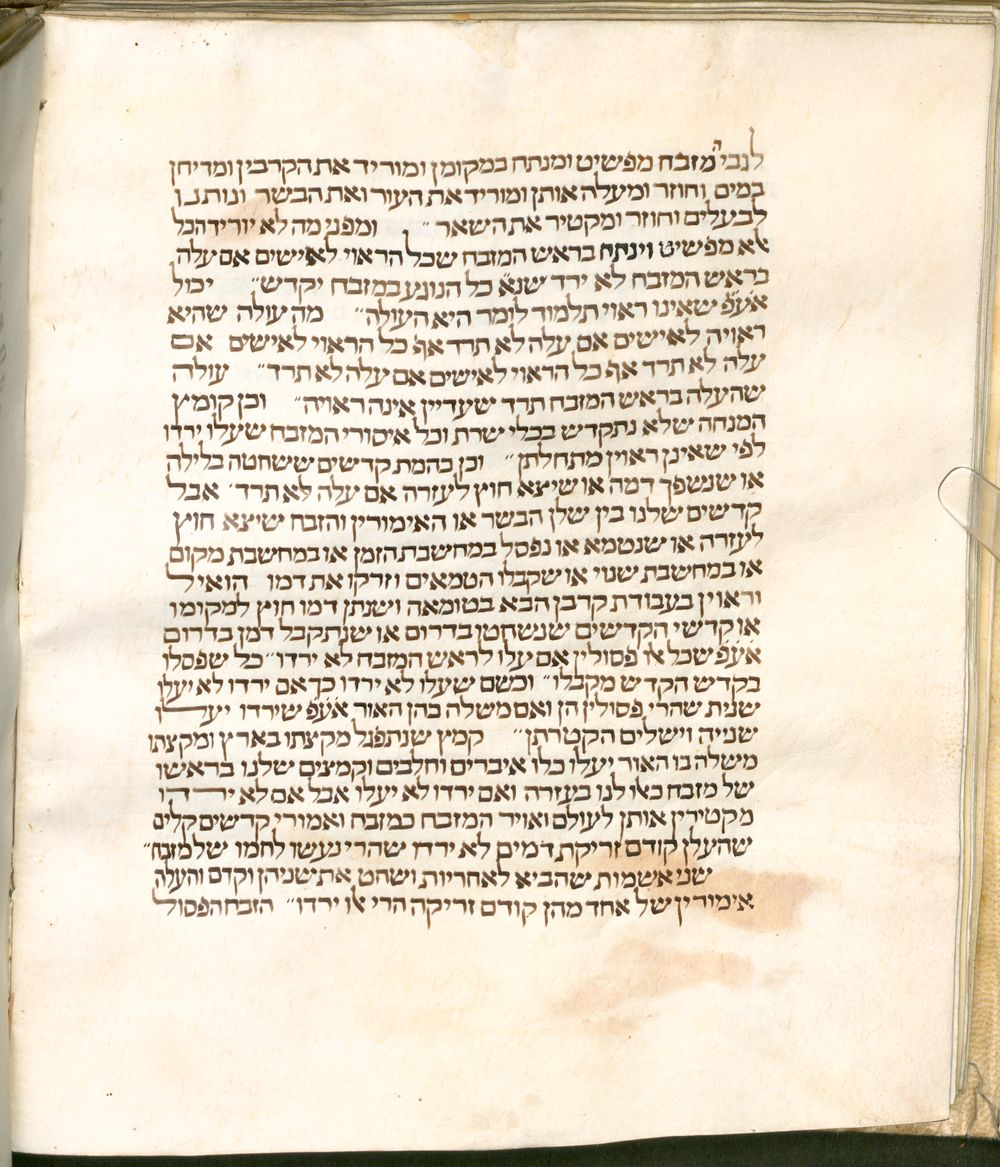 לגבי המזבח מפשיט ומנתח במקומן ומוריד את הקרבין ומדיחן
במים וחוזר ומעלה אותן ומוריד את העור ואת הבשר ונותנו
לבעלים וחוזר ומקטיר את השאר״ ומפני מה לא יוריד הכל
אלא מפשיט וינתח בראש המזבח שכל הראוי לאישים אם עלה
בראש המזבח לא ירד שנא׳ כל הנוגע במזבח יקדש״ יכול
אעפ שאינו ראוי תלמוד לומר היא העולה״ מה עולה שהיא
ראויה לאישים אם עלה לא תרד אף כל הראוי לאישים אם
עלה לא תרד אף כל הראוי לאישים אם עלה לא תרד״ עולה
שהעלה בראש המזבח תרד שעדיין אינה ראויה״ וכן קומץ
המנחה שלא נתקדש בכלי שרת וכל איסורי המזבח שעלו ירדו
לפי שאינן ראוין מתחלתן״ וכן בהמת קדשים ששחטה בלילה
או שנשפך דמה או שיצא חוץ לעזרה אם עלה לא תרד׳ אבל
קדשים שלנו בין שלן הבשר או האימורין והזבח שיצא חוץ
לעזרה או שנטמא או נפסל במחשבת הזמן או במחשבת מקום
או במחשבת שנוי או שקבלו הטמאים וזרקו את דמו הואיל
וראוין בעבודת קרבן הבא בטומאה ושנתן דמו חוץ למקומו
או קדשי הקדשים שנשחטן בדרום או שנתקבל דמן בדרום
אעפ שכל אלו פסולין אם עלו לראש המזבח לא ירדו״ כל שפסלו
בקדש הקדש מקבלו״ וכשם שעלו לא ירדו כך אם ירדו לא יעלו
שנית שהרי פסולין הן ואם משלה בהן האור אעפ שירדו יעלו
שנייה וישלים הקטרתן״ קמץ שנתפגל מקצתו בארץ ומקצתו
משלה בו האור יעלו כלו איברים וחלבים וקמצים שלנו בראשו
של מזבח כאלו לנו בעזרה ואם ירדו לא יעלו אבל אם לא ירדו
מקטירין אותן לעולם ואויר המזבח כמזבח ואמורי קדשים קלים
שהעלן קודם זריקת דמים לא ירדו שהרי נעשו לחמו של מזבח״
שני אשמות שהביא לאחריות ושחט את שניהן וקדם והעלה
אימורין של אחד מהן קודם זריקה הרי אלו ירדו״ הזבח הפסול